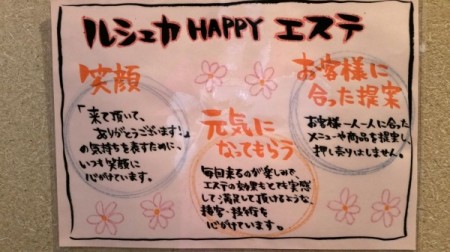 ルシュカ HAPPY エステ
笑顔
「来て頂いて、
ありがとうございます!」
の気持ちを表すために、
いつも笑顔に
心がけています。
元気に
なってもらう
毎回来るのが楽しみで、
エステの効果もとても実感
して満足して頂けるような、
接客・技術を
心がけています。
お客様に
合った提案
お客様一人一人に合った
メニューや商品を提案し、
押し売りはしません。